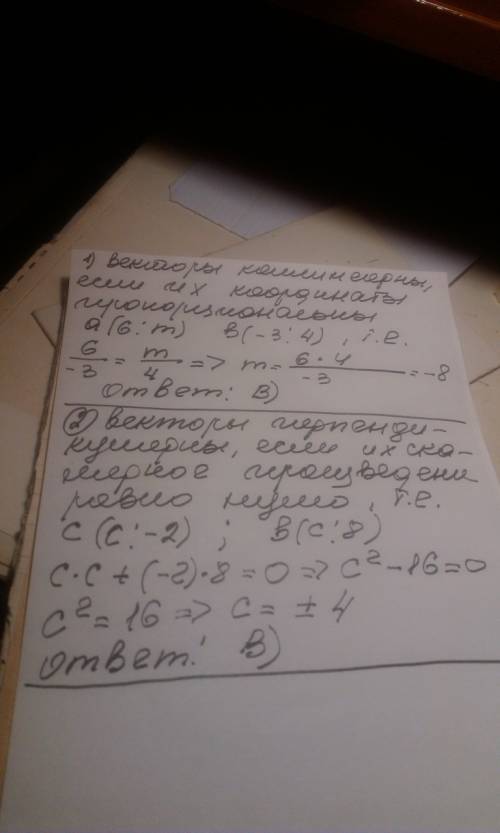 1) Векторы коллинеарны,
если их координаты
пропорциональны
a(6; m) b(-3; 4), т.е.
6/-3 = m/4 => m = 6·4/-3 = -8
Ответ: В)
2) Векторы перпенди-
кулярны, если их ска-
лярное произведени
равно нулю, т.е.
c(c; -2) ; b(c; 8)
c·c + (-2)·8 = 0 => c² - 16 = 0
c² = 16 => c = ± 4
Ответ: В)